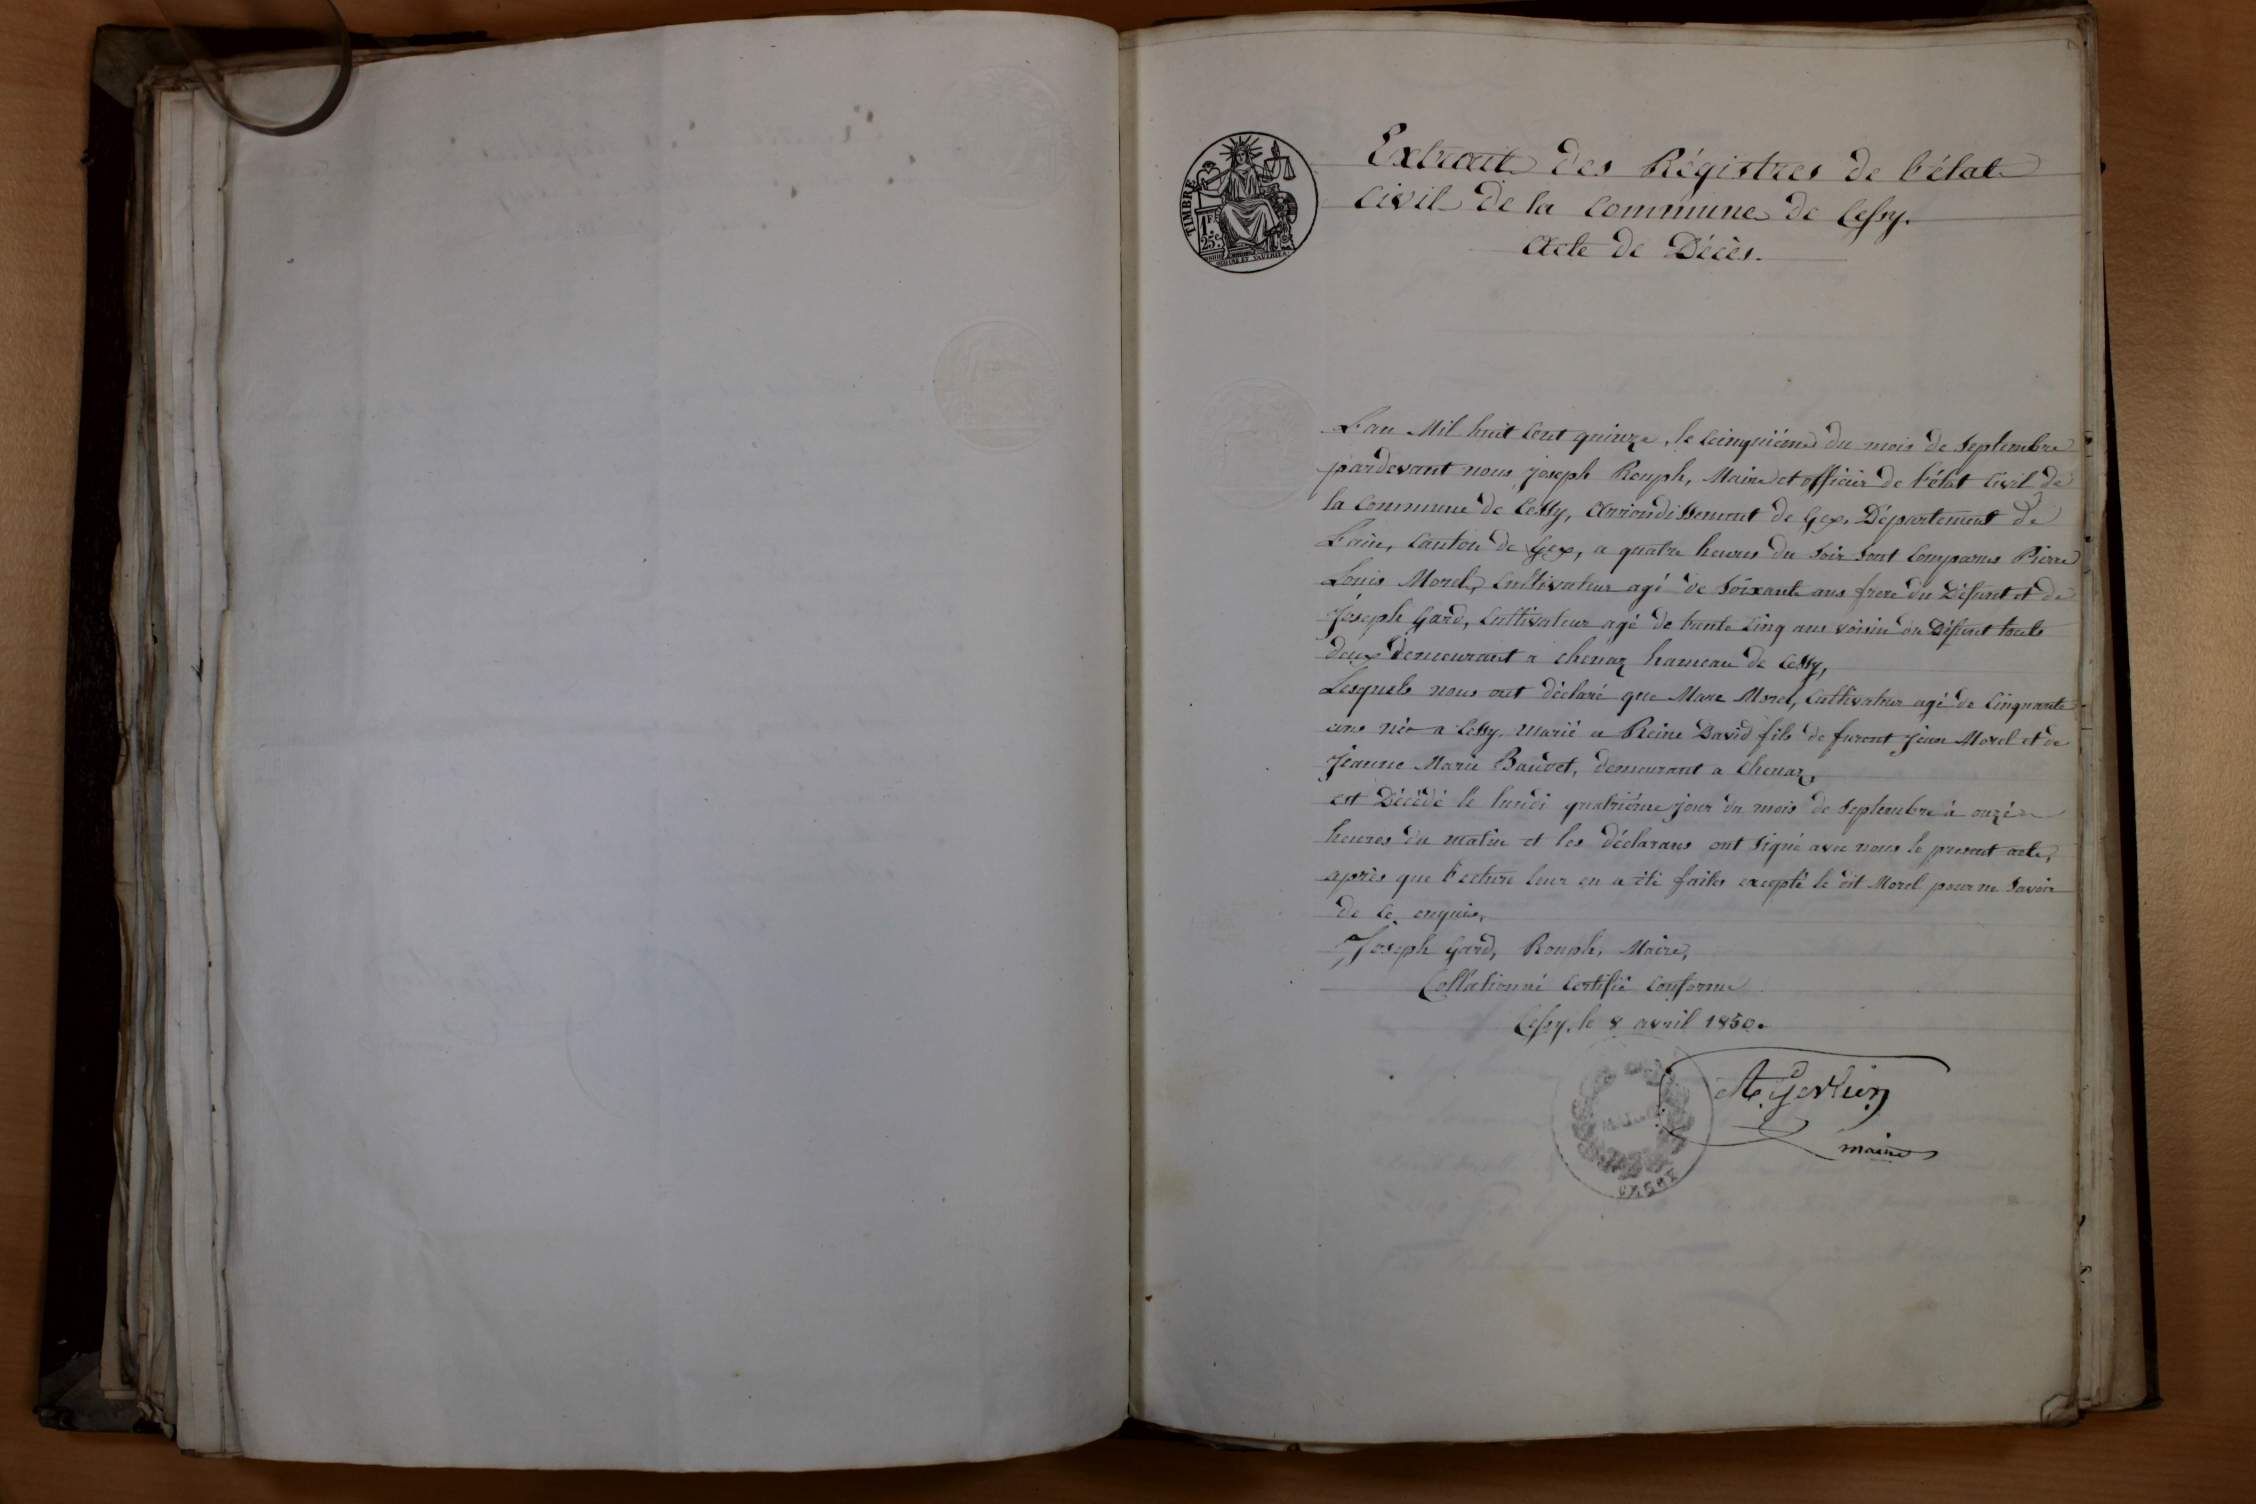 Extrait des Régistres de l'état
Civil de la Commune de Cessy.
Acte de Décès.
TIMBRE
1F
25c
L'an Mil huit Cent quinze, le Cinquième du mois de Septembre
pardevant nous Joseph Rouph, Maire et officier de l'état Civil de
la Commune de Cessy, Arrondissement de Gex, Département de
L'ain, Canton de Gex, a quatre heures du Soir Sont Comparus Pierre
Louis Morel, Cultivateur agé de Soixante ans frere du Défunt et de
Joseph Gard, Cultivateur agé de trente Cinq ans voisin du Défunt touts
deux demeurant a Chenaz hameau de Cessy,
Lesquels nous ont déclaré que Marc Morel, Cultivateur agé de Cinquante
ans née a Cessy. Marié a Reine David fils de furent Jean Morel et de
Jeanne Marie Baudet, demeurant a Chenaz,
est Décédé le lundi quatrième jour du mois de Septembre à onzé
heures du matin et les déclarans ont Signé avec nous le present acte,
après que lecture leur en a été faites excepté le dit Morel pour ne Savoir
de Ce enquis,
Joseph Gard, Rouph, Maire,
Collationné Certifié Conforme
Cessy, le 8 avril 1850.
maire